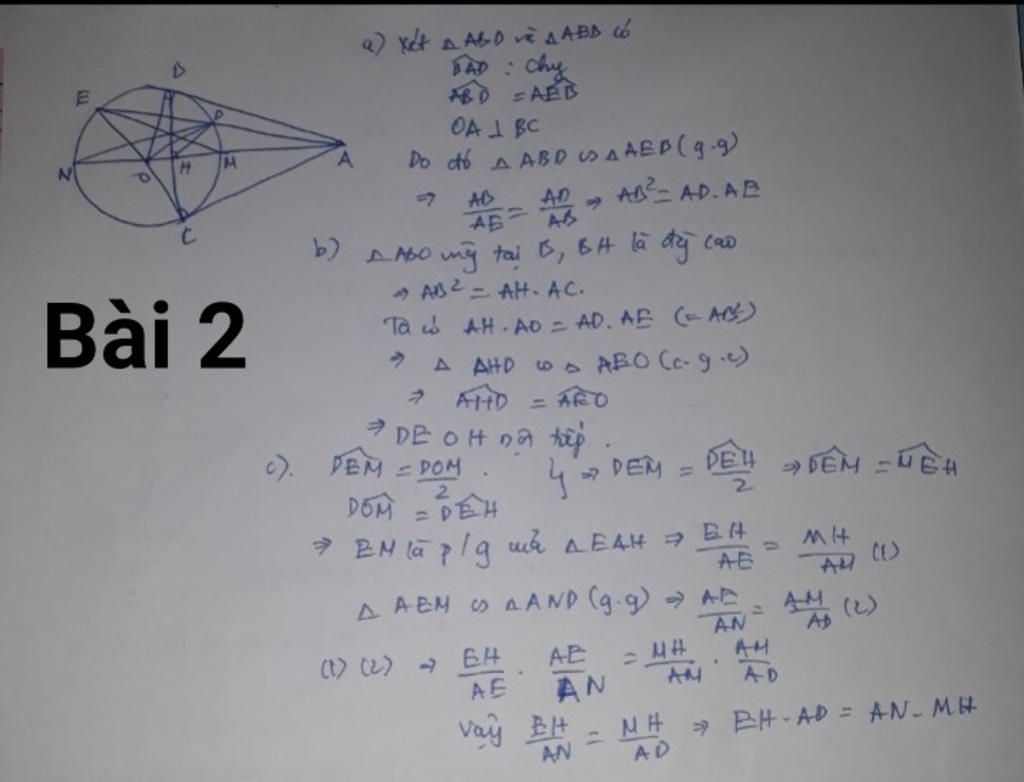 a) Xét △ABD và △AEB có
B̂AD : Chg
ÂBD = ÂEB
OA ⊥ BC
Do đó △ABD ∽ △AEB (g.g)
⇒ AB/AE = AD/AB ⇒ AB² = AD.AE
b) △ABO vuông tại B, BH là đg cao
⇒ AB² = AH.AC.
Ta có AH.AO = AD.AE (= AB²)
⇒ △ AHD ∽ △ AEO (c.g.c)
⇒ ÂHD = ÂEO
⇒ DEOH nội tiếp.
c). D̂EM = D̂OM/2 . } ⇒ D̂EM = D̂EH/2 ⇒ D̂EM = M̂EH
D̂OM = D̂EH
⇒ EM là p/g của △EAH ⇒ EH/AE = MH/AM (1)
△ AEM ∽ △AND (g.g) ⇒ AE/AN = AM/AD (2)
(1) (2) ⇒ EH/AE . AE/AN = MH/AM . AM/AD
Vậy EH/AN = MH/AD ⇒ EH.AD = AN.MH
B
E
D
N
O
H
M
A
C
Bài 2